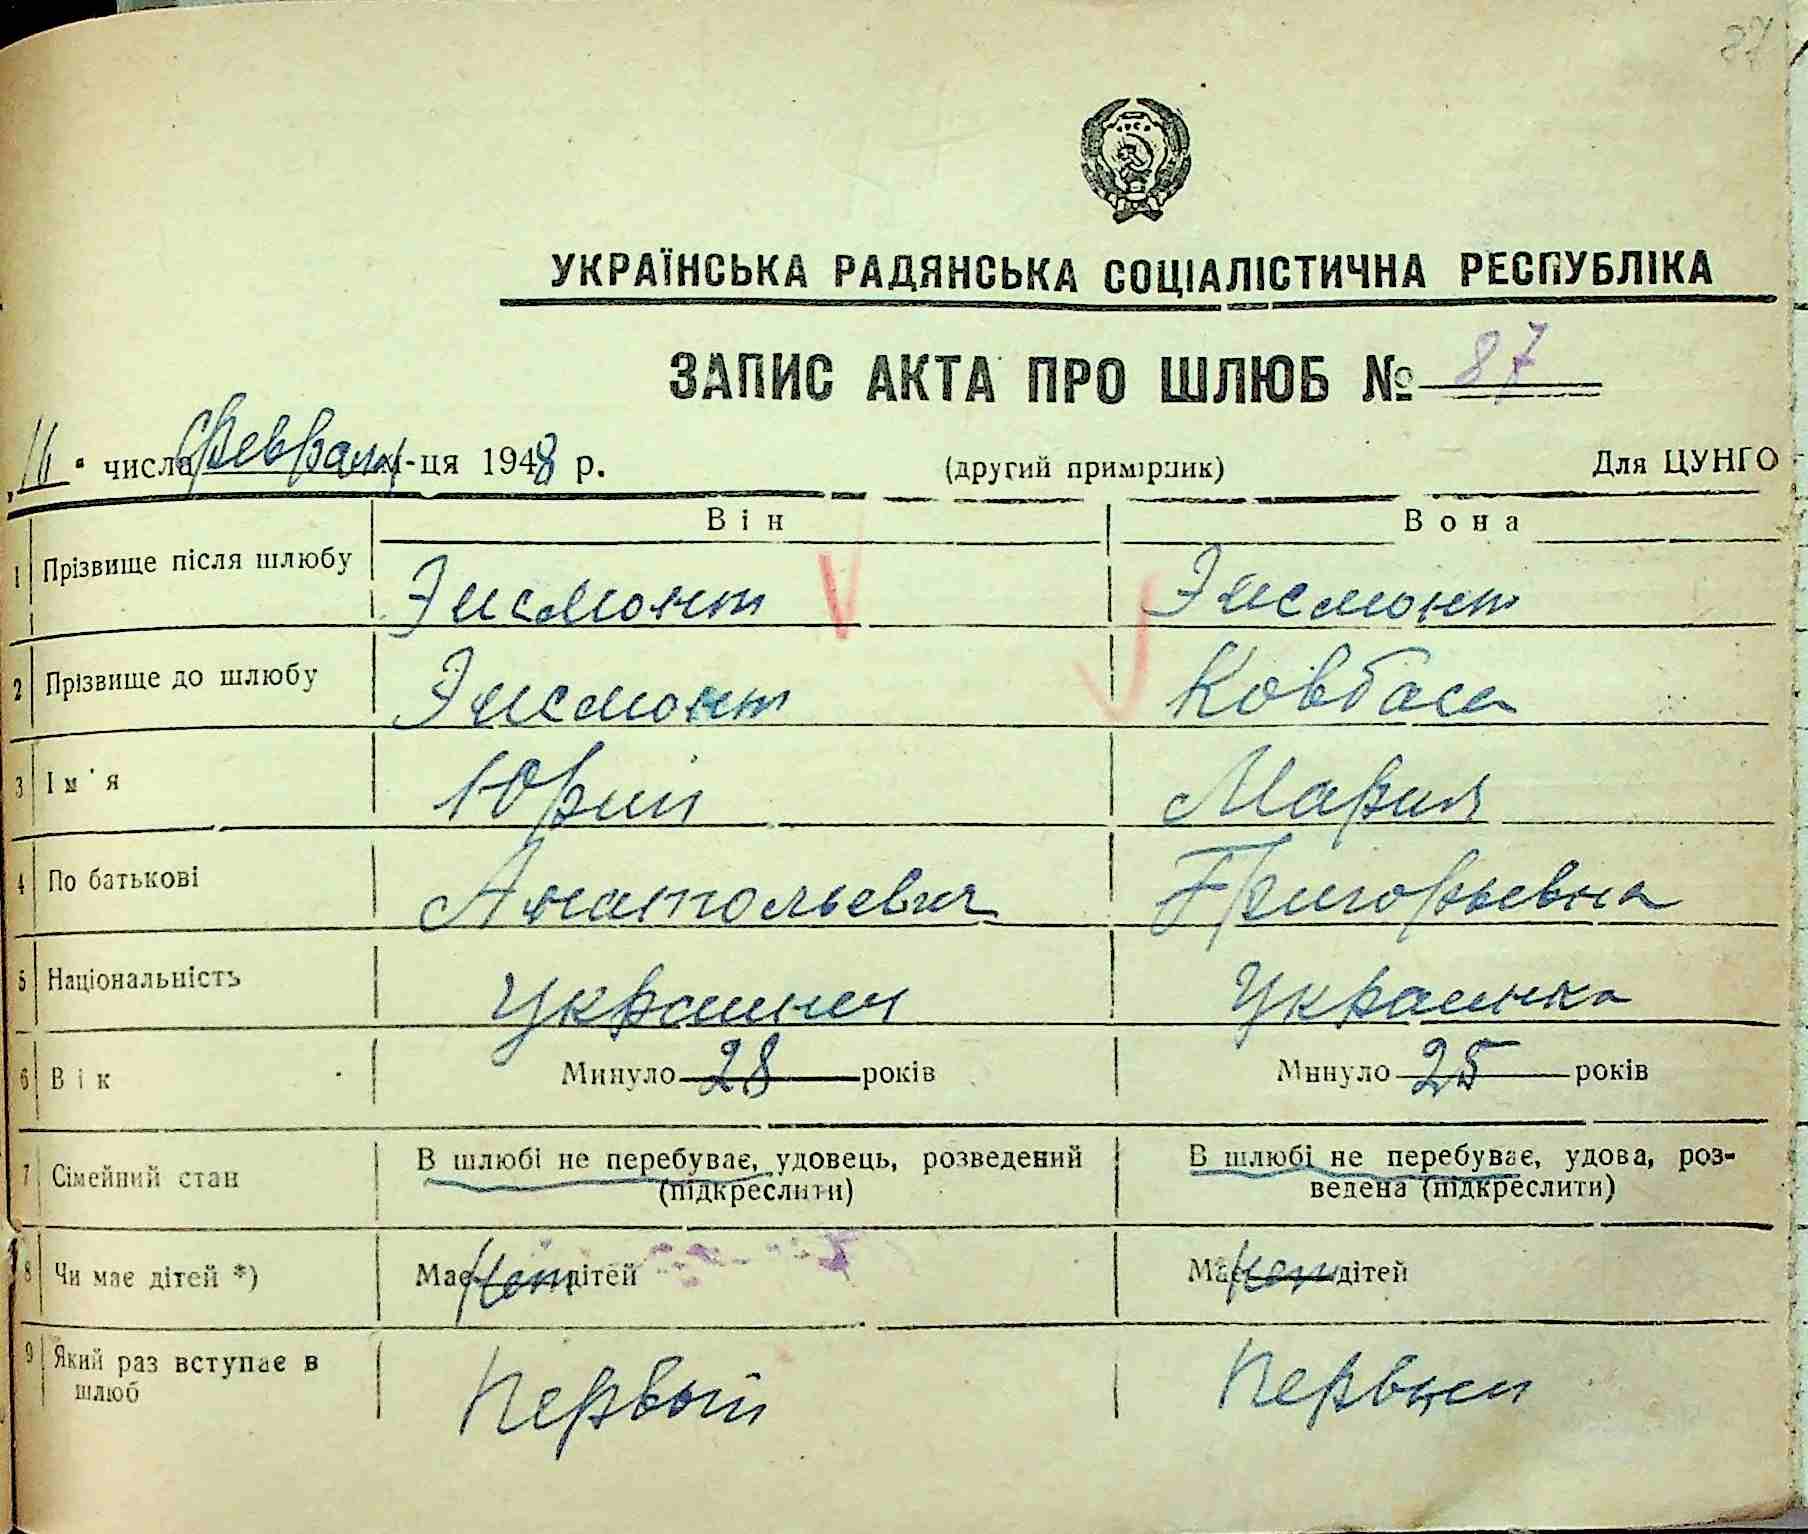 УКРАЇНСЬКА РАДЯНСЬКА СОЦІАЛІСТИЧНА РЕСПУБЛІКА
ЗАПИС АКТА ПРО ШЛЮБ № 87
числа Февраля м-ця 1948 р. (другий примірник) Для ЦУНГО
Він Вона
1 Прізвище після шлюбу Эйсмонт Эйсмонт
2 Прізвище до шлюбу Эйсмонт Ковбаса
3 Ім'я Юрий Мария
4 По батькові Анатольевич Григорьевна
5 Національність Украинец Украинка
6 Вік Минуло 28 років Минуло 25 років
7 Сімейний стан В шлюбі не перебуває, удовець, розведений В шлюбі не перебуває, удова, роз-
(підкреслити) ведена (підкреслити)
8 Чи має дітей *) Має нет дітей Має нет дітей
9 Який раз вступає в
шлюб Первый Первый